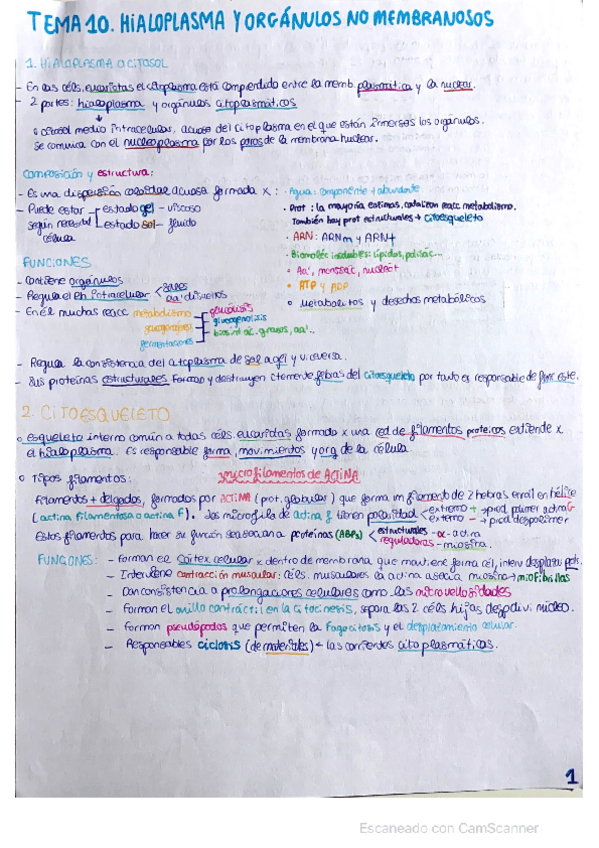 TEMA 10. HIALOPLASMA Y ORGÁNULOS NO MEMBRANOSOS
1. HIALOPLASMA O CITOSOL
- En las céls. eucariotas el citoplasma está comprendido entre la memb. plasmática y la nuclear.
- 2 partes: hialoplasma y orgánulos citoplasmáticos
↓
o citosol medio intracelular, acuoso del citoplasma en el que están inmersos los orgánulos.
Se comunica con el nucleoplasma por los poros de la membrana nuclear.
Composición y estructura:
- Es una dispersión coloidal acuosa formada x:
- Puede estar estado gel - viscoso
según necesidad estado sol - fluido
célula
· Agua: componente + abundante
· Prot: la mayoría enzimas, catalizan reacc metabolismo.
También hay prot estructurales → citoesqueleto
· ARN: ARNm y ARNt
· Biomoléc insolubles: lípidos, polisác...
· Aa', monosác, nucleót
· ATP y ADP
o Metabolitos y desechos metabólicos
FUNCIONES
- Contiene orgánulos
- Regula el pH intracelular < sales
aa' disueltos
- En él muchas reacc metabolismo glucólisis
glucogenolisis
fermentaciones biosíntác. grasos, aa'..
- Regula la consistencia del citoplasma de sol a gel y viceversa.
- Sus proteínas estructurales forman y destruyen ctemente fibras del citoesqueleto por tanto es responsable de func este.
2. CITOESQUELETO
o esqueleto interno común a todas céls. eucariotas formado x una red de filamentos proteicos extiende x
el hialoplasma. Es responsable forma, movimientos y org de la célula.
o Tipos filamentos:
microfilamentos de ACTINA
Filamentos + delgados, formados por ACTINA (prot. globular) que forma un filamento de 2 hebras enroll en hélice
(actina filamentosa o actina F). Los microfila de actina f tienen polaridad < extremo + → pred. polimer actina G
extremo - → pred despolimer
Estos filamentos para hacer su función se asocian a proteínas (ABPs) < estructurales - α-actina
reguladoras - miosina.
FUNCIONES: - forman el córtex celular x dentro de membrana que mantiene forma cél, interv desplaz
- Interviene contracción muscular: céls. musculares la actina asocia miosina → miofibrillas
- Dan consistencia a prolongaciones celulares como las microvellosidades
- Forman el anillo contráctil en la citocinesis, separa las 2 céls hijas desp divi núcleo.
- forman pseudópodos que permiten la fagocitosis y el desplazamiento celular.
- Responsables ciclosis (de materiales) ← las corrientes citoplasmáticas.
1
Escaneado con CamScanner